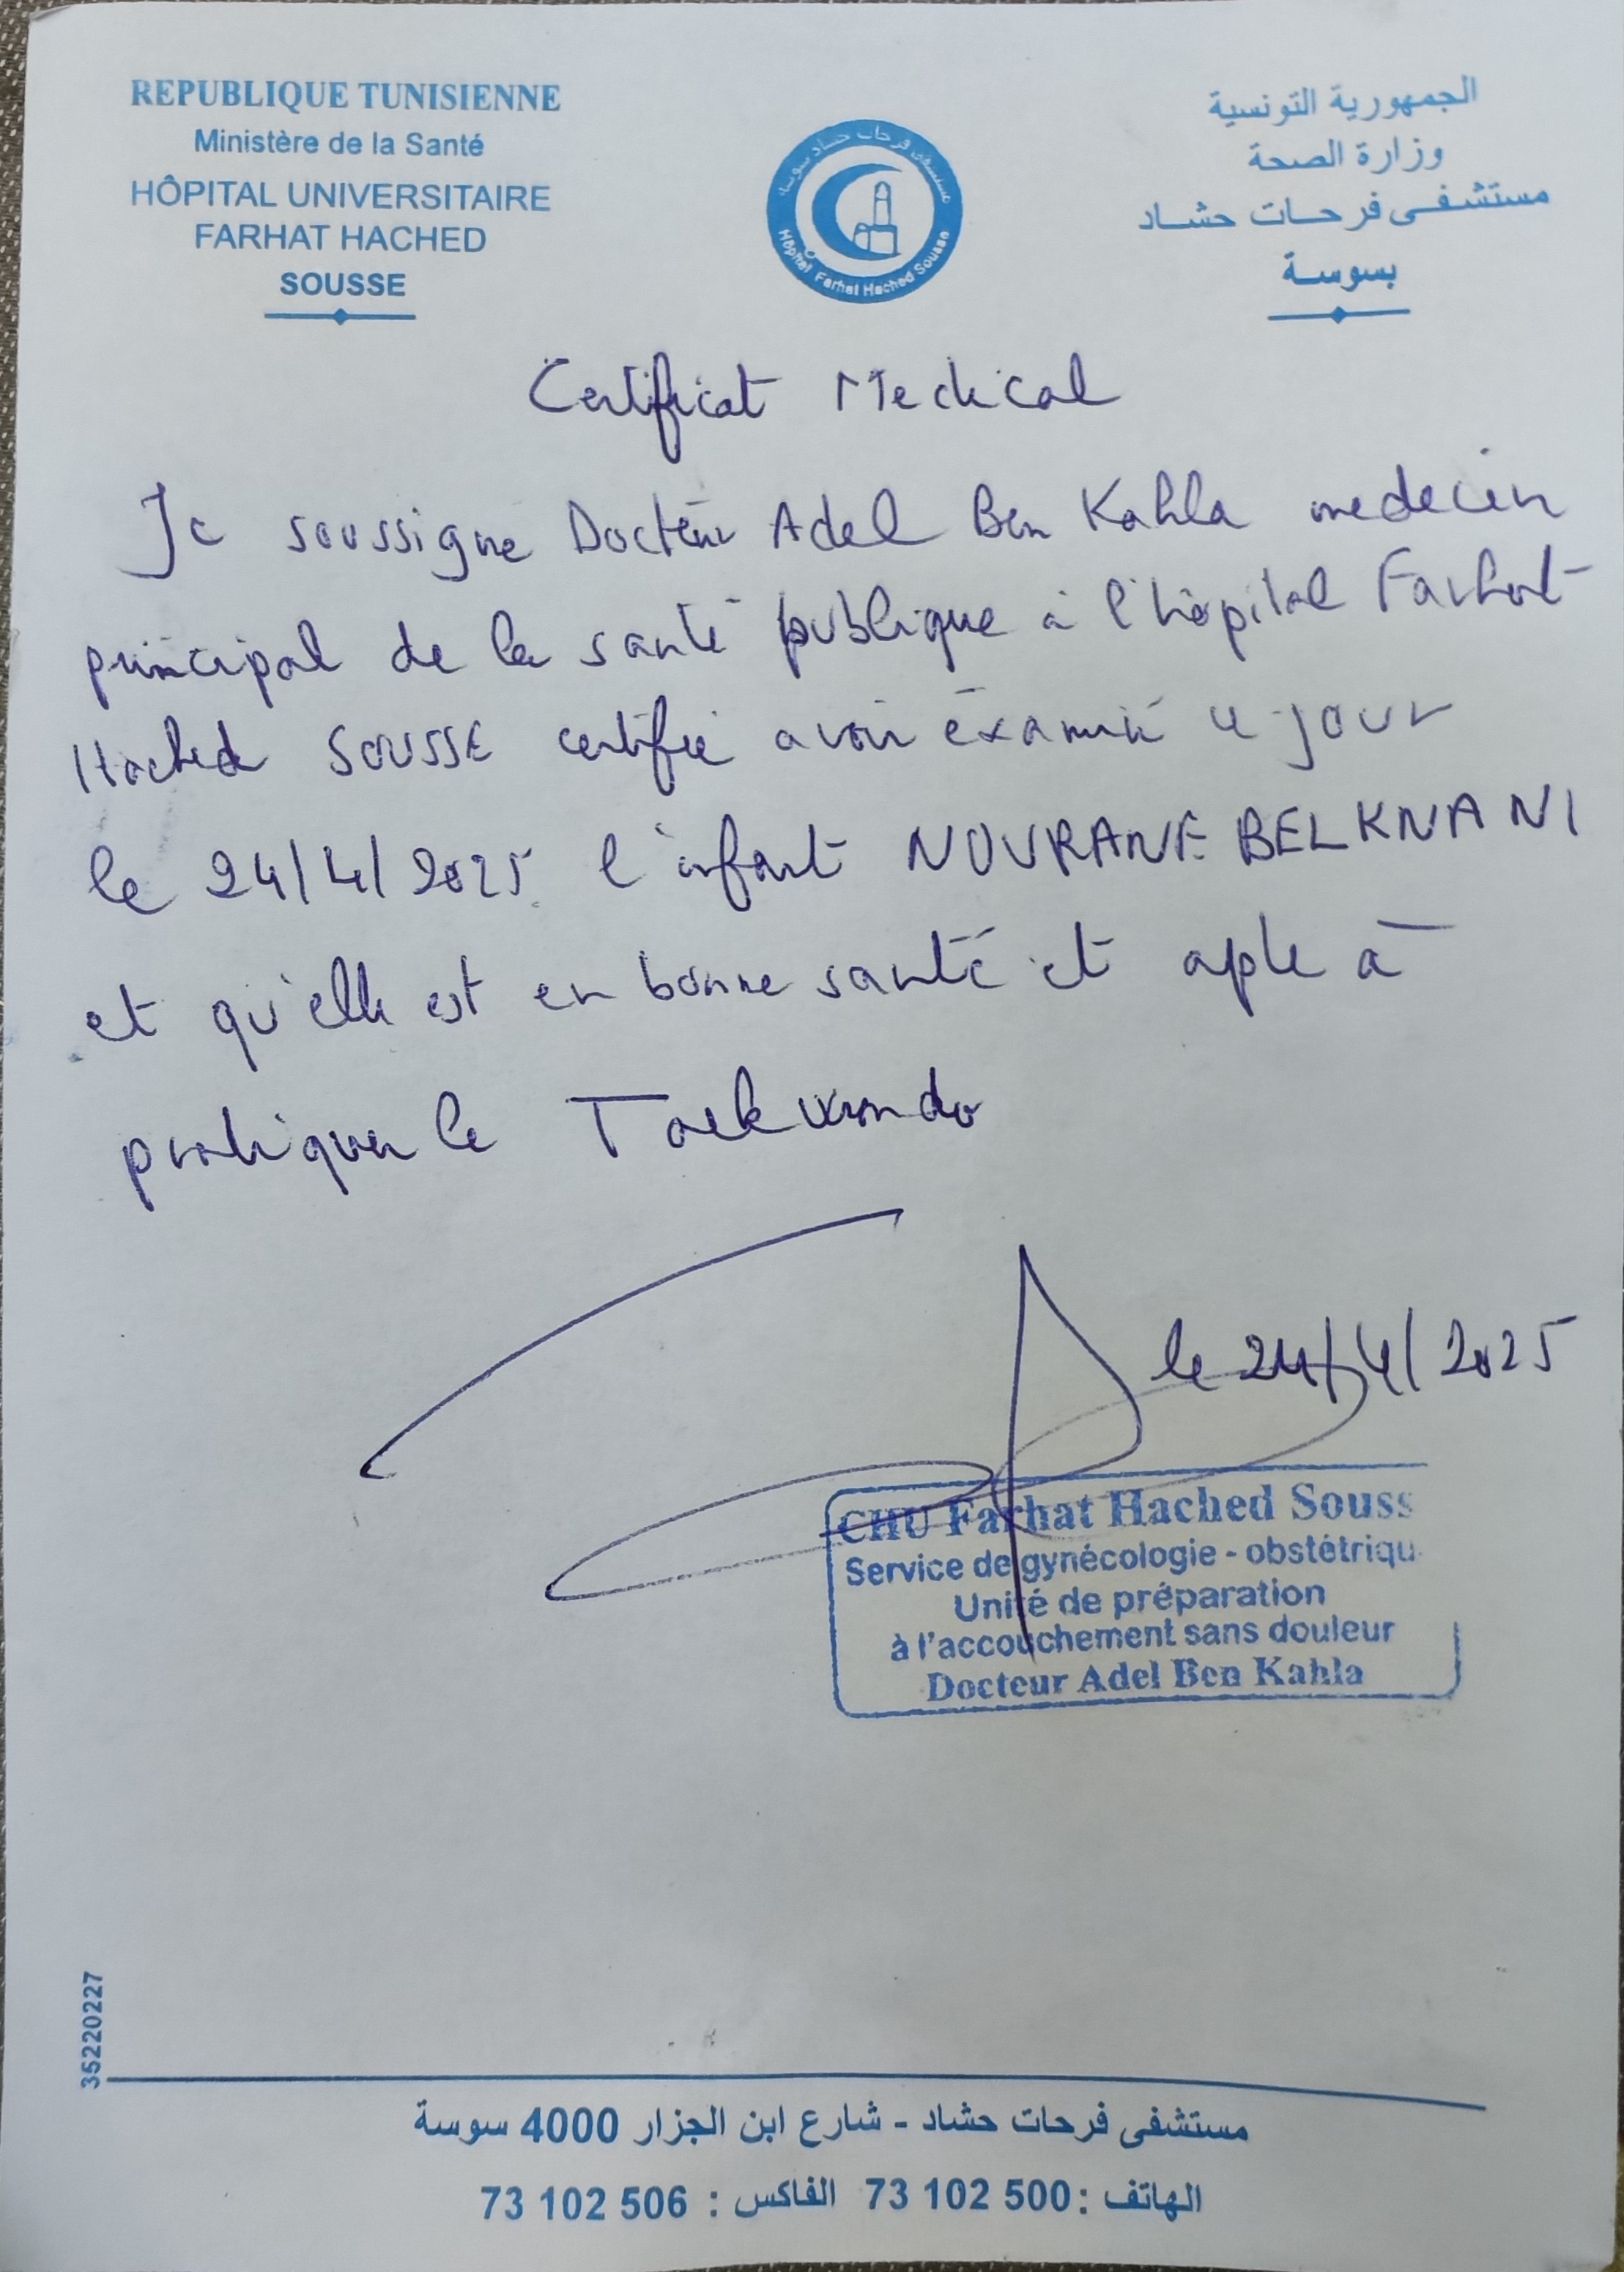 REPUBLIQUE TUNISIENNE
Ministère de la Santé
HÔPITAL UNIVERSITAIRE
FARHAT HACHED
SOUSSE
الجمهورية التونسية
وزارة الصحة
مستشفى فرحات حشاد
بسوسة
مستشفى فرحات حشاد سوسة
Hôpital Farhat Hached Sousse
Certificat Medical
Je soussigne Docteur Adel Ben Kahla medecin
principal de la santé publique à l'hôpital Farhat
Hached SOUSSE certifie avoir éxaminé ce jour
le 24/4/2025 l'enfant NOURANE BELKNANI
et qu'elle est en bonne santé et apte à
pratiquer le Taekwondo
le 24/4/2025
CHU Farhat Hached Souss
Service de gynécologie - obstétriqu
Unité de préparation
à l'accouchement sans douleur
Docteur Adel Ben Kahla
35220227
مستشفى فرحات حشاد - شارع ابن الجزار 4000 سوسة
الهاتف : 73 102 500 الفاكس : 73 102 506